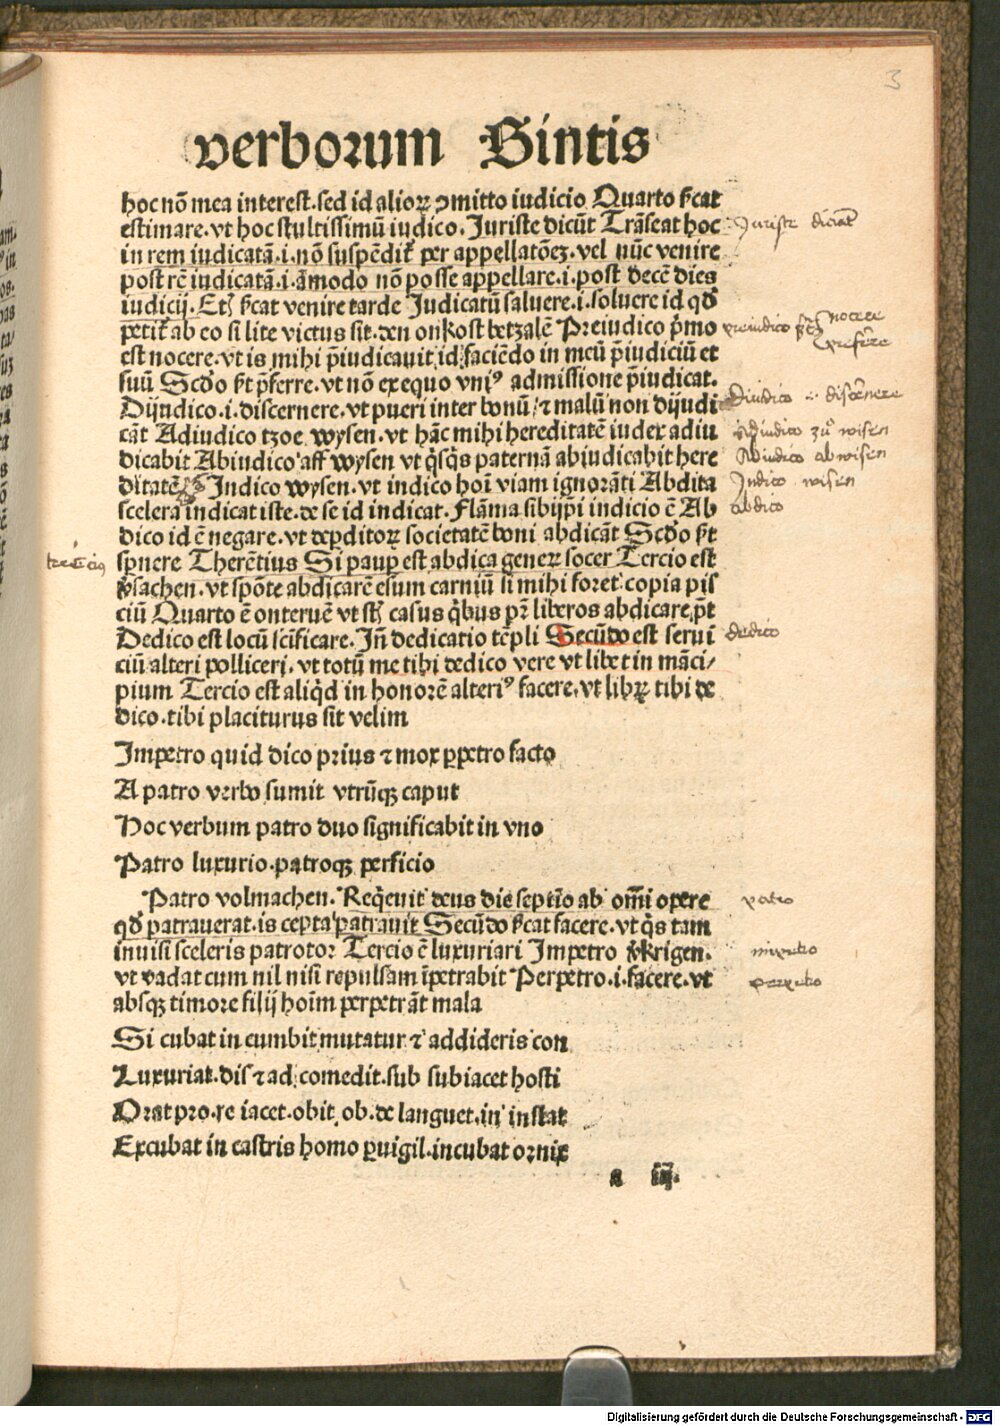 3
verborum Sintis
hoc nō mea interest. sed id alioꝝ ↄmitto iudicio Quarto ſ̄cat
estimare. vt hoc stultissimū iudico. Juriste dicūt Trāseat hoc
in rem iudicatā. i. nō suspēdit᷑ per appellatōeꝫ. vel nūc venire
post rē iudicatā. i. āmodo nō posse appellare. i. post decē dies
iudicij. Etꝫ ſ̄cat venire tarde Judicatū saluere. i. soluere id qđ
petit᷑ ab eo si lite victus sit. den onkost betzalē Preiudico p̄mo
est nocere. vt is mihi p̄iudicauit id faciēdo in meū p̄iudiciū et
suū Scđo ſt p̄ferre. vt nō ex equo vniꝰ admissione p̄iudicat.
Dijudico. i. discernere. vt pueri inter bonū ⁊ malū non dijudi
cāt Adiudico tzoe wysen. vt hāc mihi hereditatē iudex adiu
dicabit Abiudico aff wysen vt q̄sq̄s paternā abiudicabit here
ditatē Indico wysen. vt indico hoī viam ignorāti Abdita
scelera indicat iste. de se id indicat. Flāma sibijpi indicio ē Ab
dico id ē negare. vt deꝑditoꝝ societatē boni abdicāt Scđo ſt
sp̄nere Therētius Si pauꝑ est abdica geneꝝ socer Tercio est
v̄sachen. vt spōte abdicarē esum carniū si mihi foret copia pis
ciū Quarto ē onteruē vt stꝫ casus q̄bus pr̄ liberos abdicare p̄t
Dedico est locū scīficare. Iñ dedicatio tēpli Secūdo est seruī
ciū alteri polliceri. vt totū me tibi dedico vere vt libet in māci/
pium Tercio est aliq̄d in honorē alteriꝰ facere. vt libꝝ tibi de
dico. tibi placiturus sit velim
Impetro quid dico prius ⁊ mox ꝑpetro facto
A patro verbo sumit vtrūqꝫ caput
Hoc verbum patro duo significabit in vno
Patro luxurio. patroqꝫ perficio
Patro volmachen. Req̄euit deus die septīo ab om̄i opere
qđ patrauerat. is cepta patrauit Secūdo ſ̄cat facere. vt q̄s tam
inuisi sceleris patrotor Tercio ē luxuriari Impetro v̄krigen.
vt vadat cum nil nisi repulsam īpetrabit Perpetro. i. facere. vt
absqꝫ timore filij hoīm perpetrāt mala
Si cubat in cumbit mutatur ⁊ addideris con
Luxuriat. dis ⁊ ad comedit. sub subiacet hosti
Orat pro. re iacet. obit ob. de languet. in instat
Excubat in castris homo ꝑuigil. incubat ornix
a iij.
Juriste dicūt
preiudico
nocere
p̄ferre
Diiudico .i. discernere
Adiudico zů wisen
Abiudico ab wisen
Indico wisen
abdico
dedico
patro
impetro
perpetro